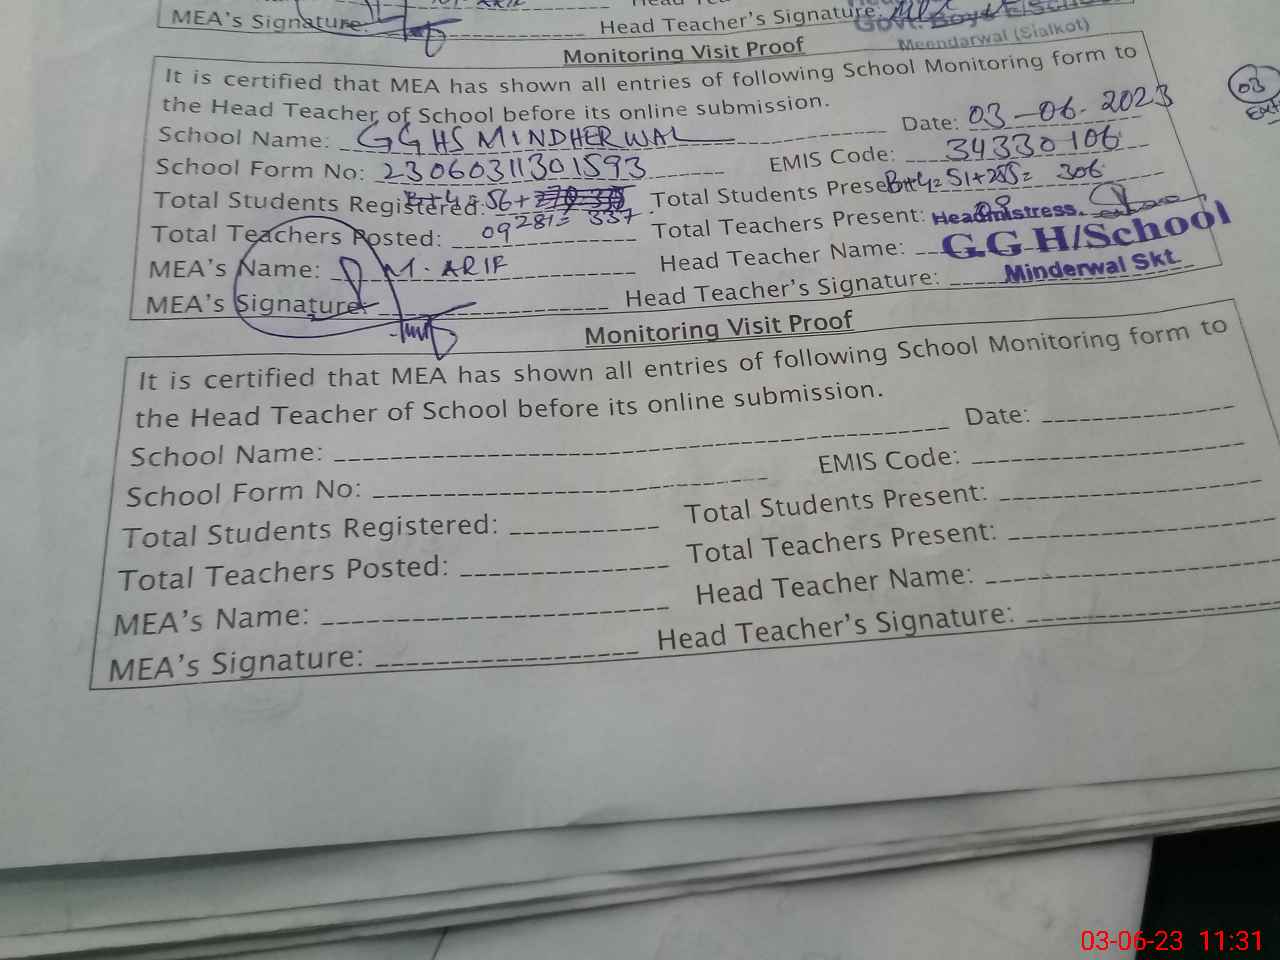 MEA's Signature: Head Teacher's Signature
Govt. Boys E/School
Meendarwal (Sialkot)
Monitoring Visit Proof
It is certified that MEA has shown all entries of following School Monitoring form to
the Head Teacher of School before its online submission.
School Name: GGHS MINDHERWAL Date: 03-06-2023
School Form No: 23060311301593 EMIS Code: 34330106
Total Students Registered: B+4= 56+ 281= 337 Total Students Present: B+4= 51+255= 306
Total Teachers Posted: 09 Total Teachers Present: 09
MEA's Name: M. ARIF Head Teacher Name:
MEA's Signature Head Teacher's Signature:
Headmistress
G.G H/School
Minderwal Skt.
03
Monitoring Visit Proof
It is certified that MEA has shown all entries of following School Monitoring form to
the Head Teacher of School before its online submission.
School Name: Date:
School Form No: EMIS Code:
Total Students Registered: Total Students Present:
Total Teachers Posted: Total Teachers Present:
MEA's Name: Head Teacher Name:
MEA's Signature: Head Teacher's Signature:
03-06-23 11:31